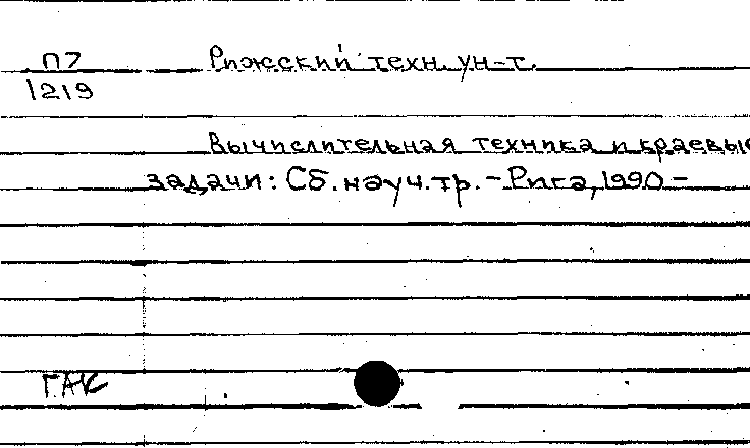 П7 Рижский техн. ун-т.
1219
Вычислительная техника и краевые
задачи: Сб. науч. тр. - Рига, 1990 -
ГАК